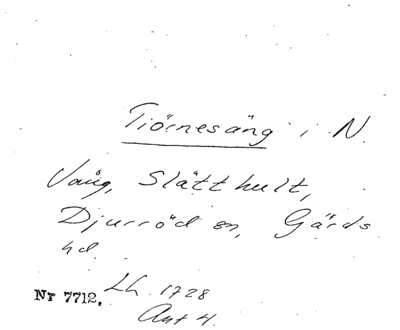 Tiörnesäng i N.
Vång, Slätthult,
Djurröd sn, Gärds
hd.
Lh. 1728
Nr 7712.
Akt 4.